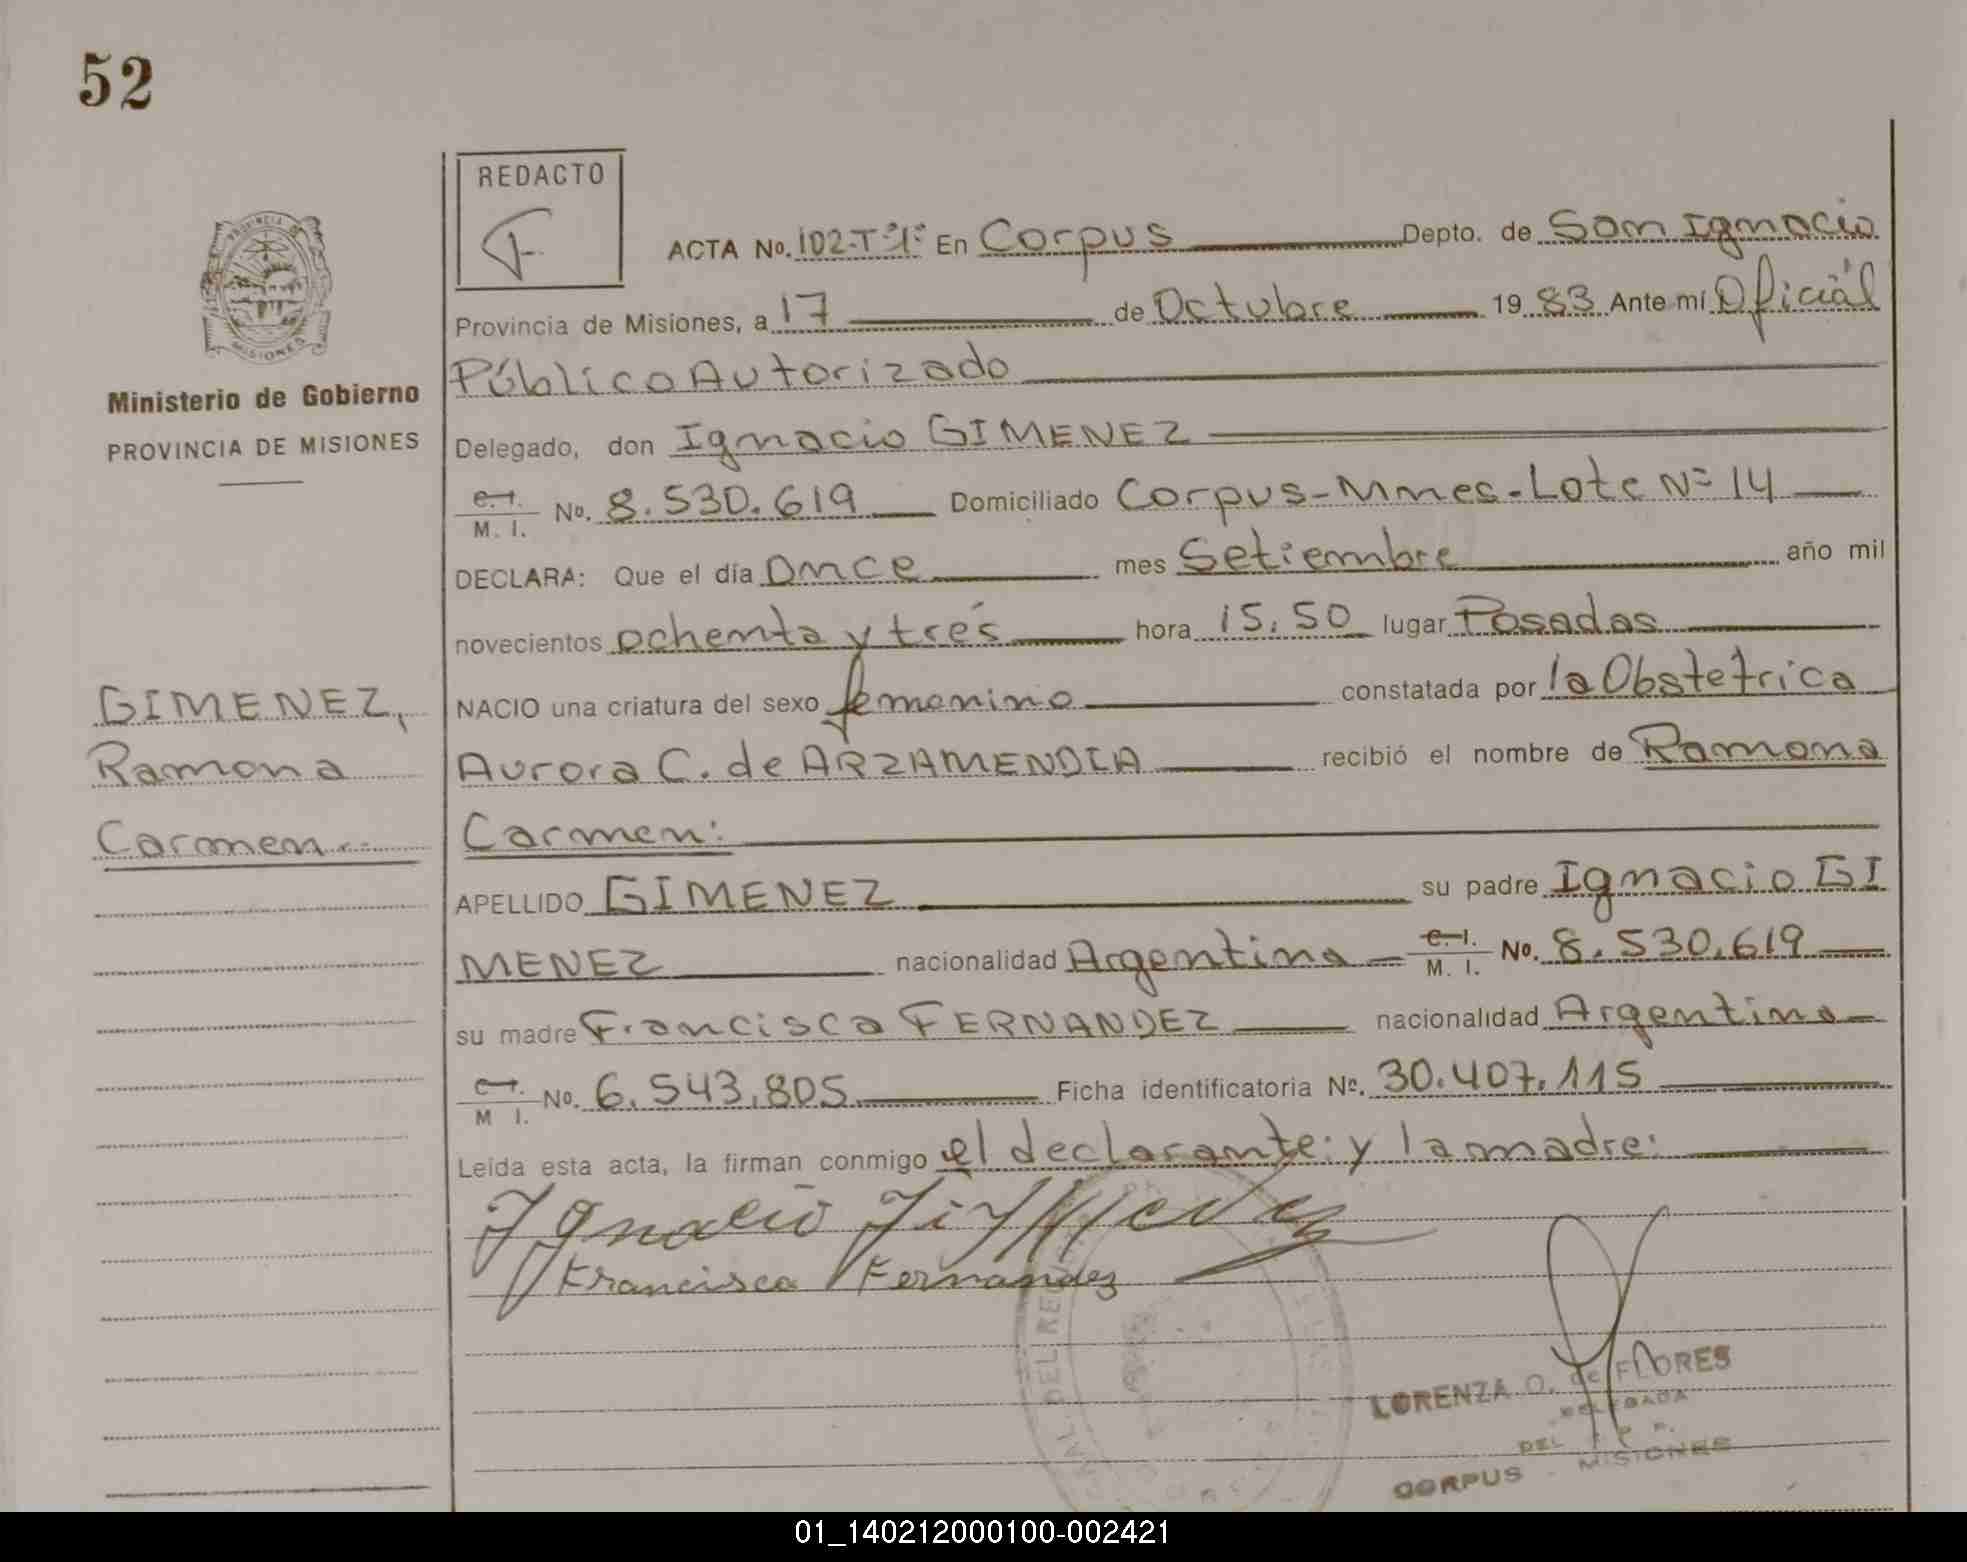 52
REDACTO
F
ACTA No. 102-Tº1º En Corpus Depto. de San Ignacio
Provincia de Misiones, a 17 de Octubre 1983 Ante mí Oficial
Público Autorizado
Delegado, don Ignacio GIMENEZ
C.I. M. I. No. 8.530.619 Domiciliado Corpus-Mnes-Lote Nº 14
DECLARA: Que el día Once mes Setiembre año mil
novecientos ochenta y tres hora 15,50 lugar Posadas
NACIO una criatura del sexo femenino constatada por la Obstetrica
Aurora C. de ARZAMENDIA recibió el nombre de Ramona
Carmen:
APELLIDO GIMENEZ su padre Ignacio GI
MENEZ nacionalidad Argentina C.I. M. I. No. 8.530.619
su madre Francisca FERNANDEZ nacionalidad Argentina
C.I. M I. No. 6.543.805 Ficha identificatoria Nº. 30.407.115
Leída esta acta, la firman conmigo el declarante: y la madre:
Ignacio Jimenez
Francisca Fernandez
PROVINCIA DE
MISIONES
Ministerio de Gobierno
PROVINCIA DE MISIONES
GIMENEZ,
Ramona
Carmen
DEL REG
LORENZA O. de FLORES
DELEGADA
DEL R. P.
CORPUS - MISIONES
01_140212000100-002421